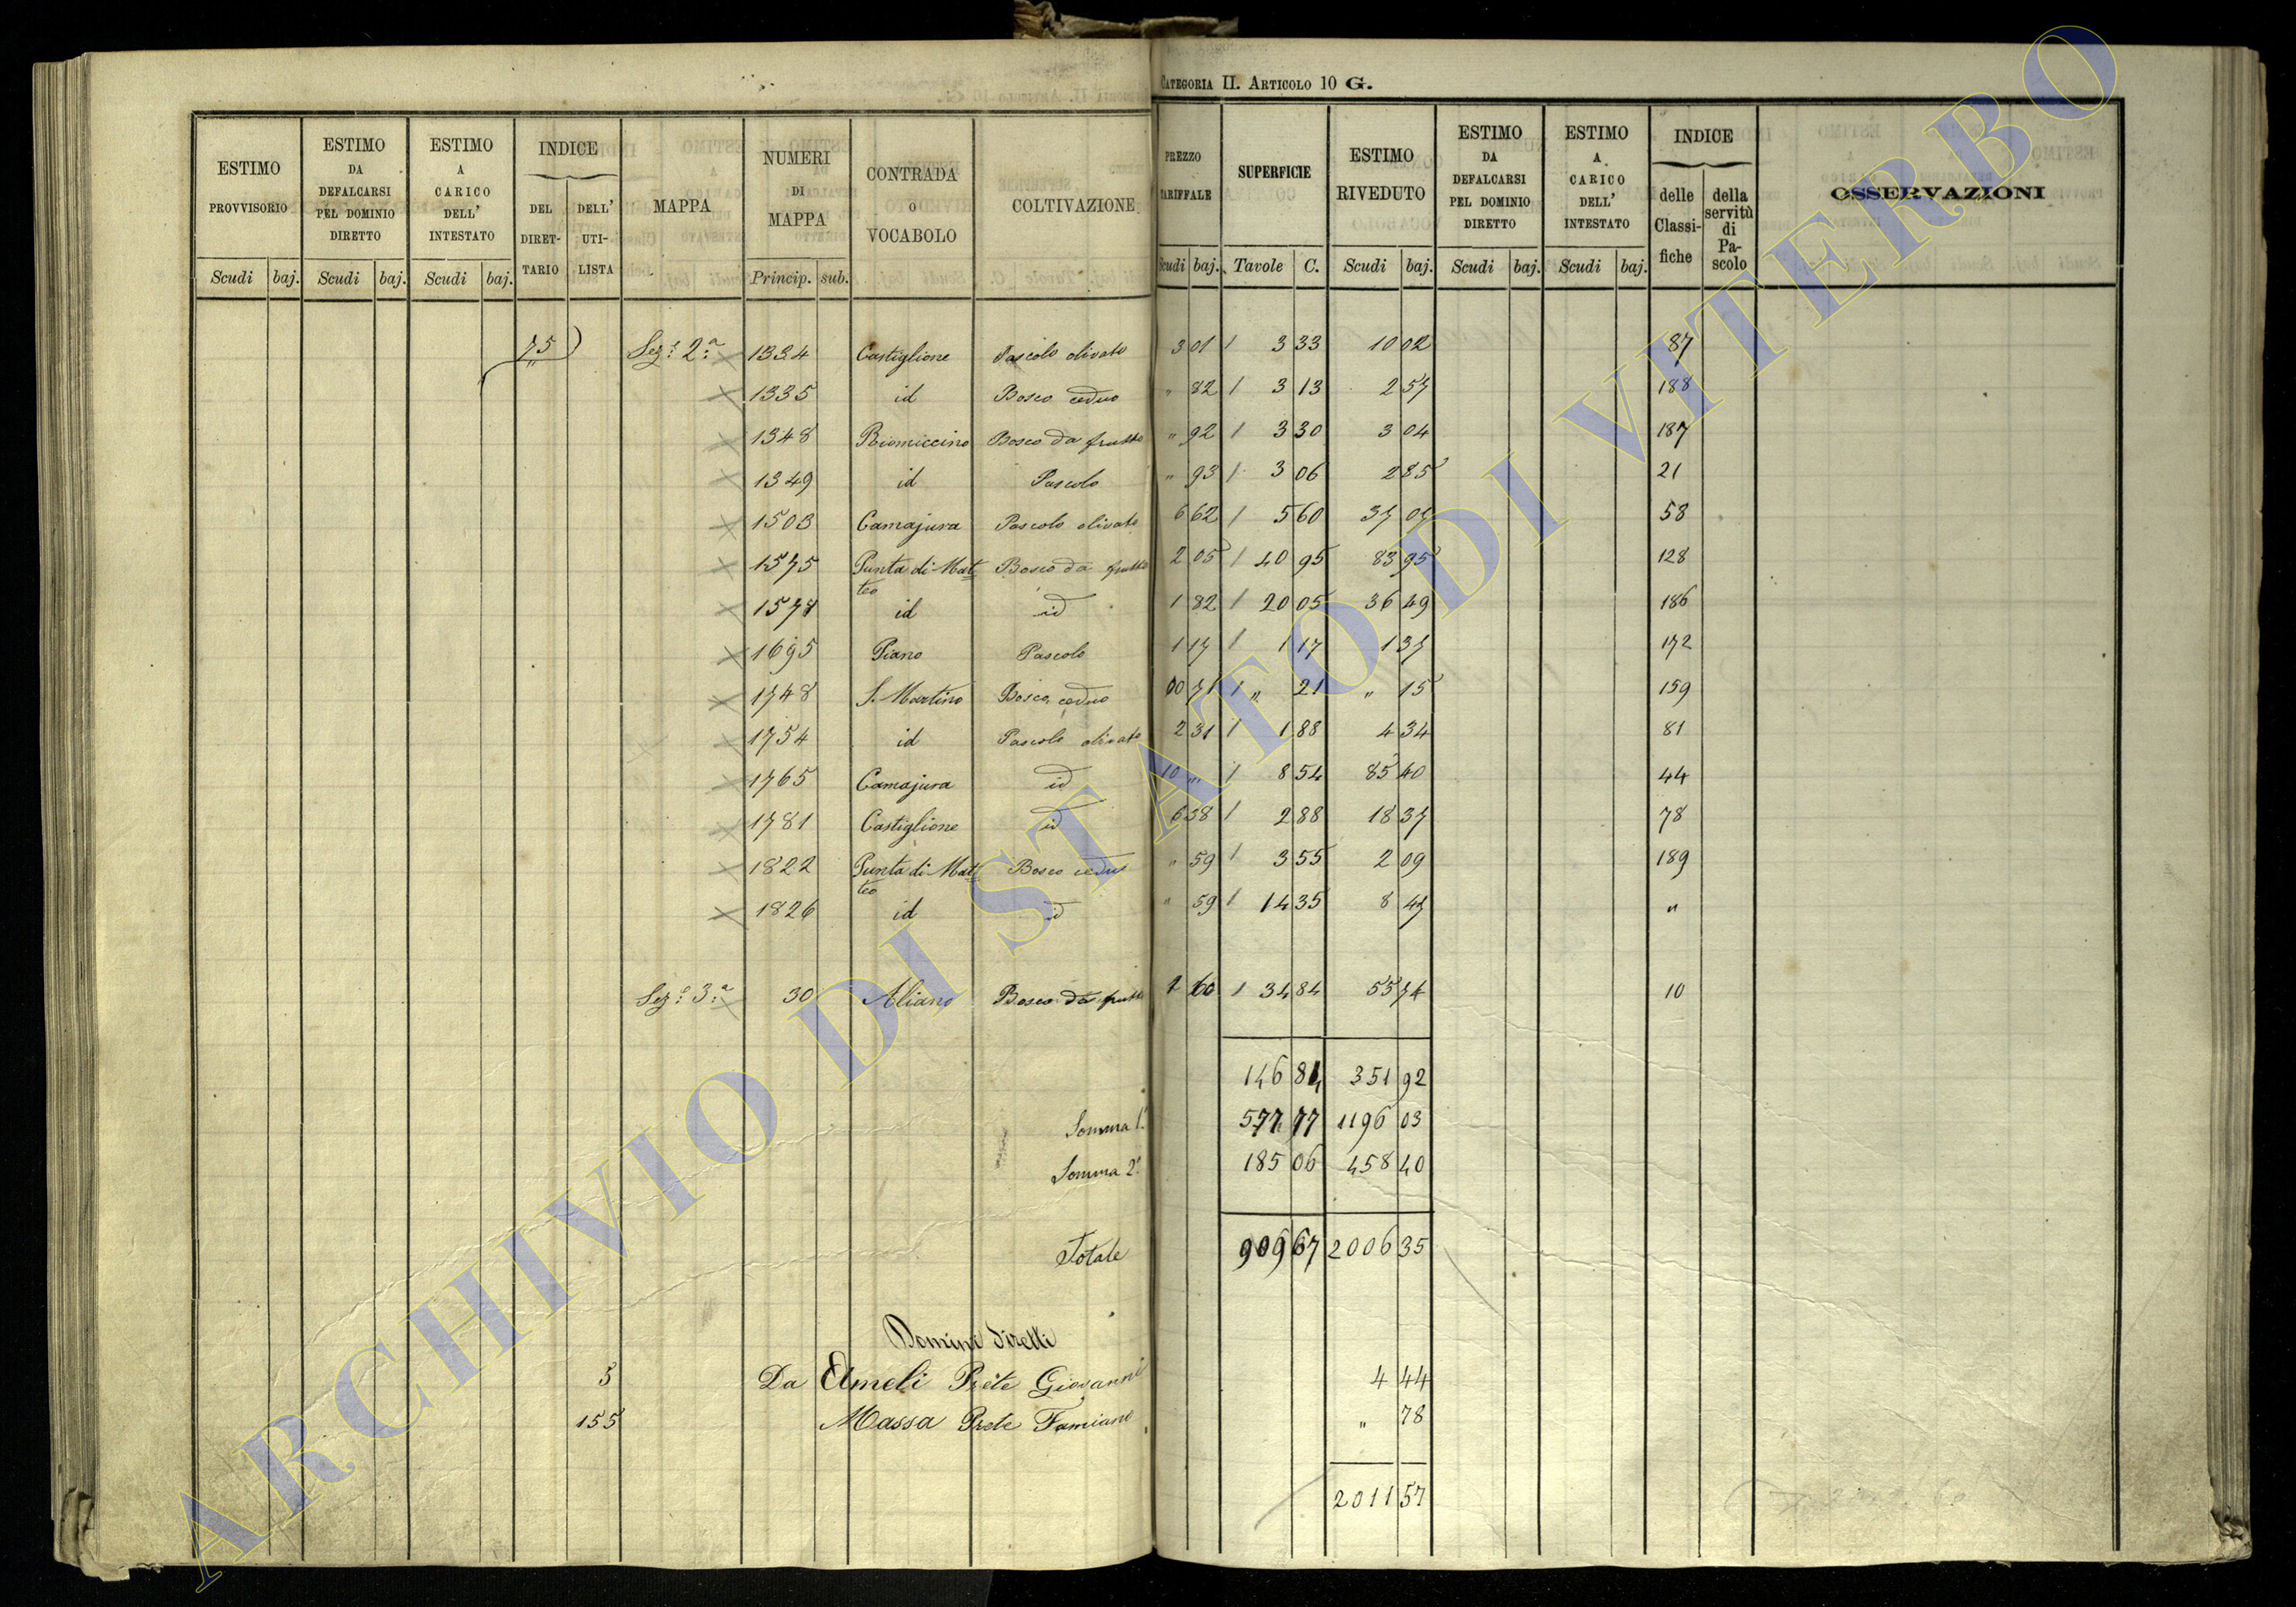 CATEGORIA II. ARTICOLO 10 G.
ESTIMO PROVVISORIO Scudi baj.
ESTIMO DA DEFALCARSI PEL DOMINIO DIRETTO Scudi baj.
ESTIMO A CARICO DELL' INTESTATO Scudi baj.
INDICE DEL DIRETTARIO DELL' UTILISTA
MAPPA
NUMERI DI MAPPA Princip. sub.
CONTRADA O VOCABOLO
COLTIVAZIONE
PREZZO TARIFFALE Scudi baj.
SUPERFICIE Tavole C.
ESTIMO RIVEDUTO Scudi baj.
ESTIMO DA DEFALCARSI PEL DOMINIO DIRETTO Scudi baj.
ESTIMO A CARICO DELL' INTESTATO Scudi baj.
INDICE delle Classifiche della servitù di Pascolo
OSSERVAZIONI
75 Sez.e 2.a 1334 Castiglione Pascolo olivato 3 01 / 3 33 10 02 87
1335 id Bosco ceduo " 82 / 3 13 2 57 188
1348 Riomiccino Bosco da frutto " 92 / 3 30 3 04 187
1349 id Pascolo " 93 / 3 06 2 85 21
1503 Camajura Pascolo olivato 6 62 / 5 60 37 07 58
1575 Punta di Matteo Bosco da frutto 2 05 / 40 95 83 95 128
1578 id id 1 82 / 20 05 36 49 186
1695 Piano Pascolo 1 17 / 1 17 1 37 172
1748 S. Martino Bosco ceduo 00 71 / " 21 " 15 159
1754 id Pascolo olivato 2 31 / 1 88 4 34 81
1765 Camajura id 10 " / 8 54 85 40 44
1781 Castiglione id 6 38 / 2 88 18 37 78
1822 Punta di Matteo Bosco ceduo " 59 / 3 55 2 09 189
1826 id id " 59 / 14 35 8 47 "
Sez.e 3.a 30 Aliano Bosco da frutto 1 60 / 34 84 55 74 10
146 84 351 92
Somma 1.a 577 77 1196 03
Somma 2.a 185 06 458 40
Totale 909 67 2006 35
Domini diretti
3 Da Elmeli Prete Giovanni 4 44
155 Massa Prete Famiano " 78
2011 57
ARCHIVIO DI STATO DI VITERBO